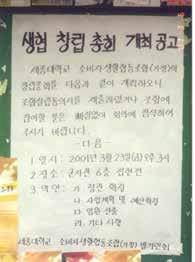 생협 창립 총회 개최 공고
세종대학교 소비자생활협동조합(가칭)의
창립총회를 다음과 같이 개최하오니
조합설립동의서를 제출하였거나 조합에
참여할 분은 빠짐없이 회의에 참석하여
주시기 바랍니다.
- 다 음 -
1. 일시 : 2001년 3월 23일(금) 오후 3시
2. 장소 : 군자관 6층 집현전
3. 의안 : 가. 정관 확정
나. 사업계획 및 예산확정
다. 임원 선출
라. 기타 사항
세종대학교 소비자생활협동조합(가칭) 발기인회